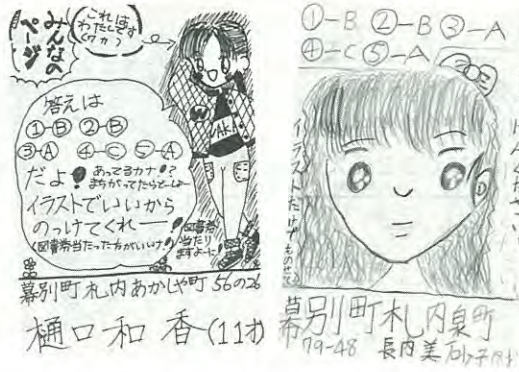 みんなの
ページ
これは
わたしです
(ワカ)
W
WAKA
答えは
①-B ②-B
③-A ④-C ⑤-A
だよ!あってるカナ!?
まちがってたらどーしよー
イラストでいいから
のっけてくれー
(図書券当たった方がいいケド)
図書券
当たり
ますよーに!
幕別町札内あかしや町56の26
樋口和香(11才)
①-B ②-B ③-A
④-C ⑤-A
イラストだけでものせて
幕別町札内泉町
79-48 長内美砂子